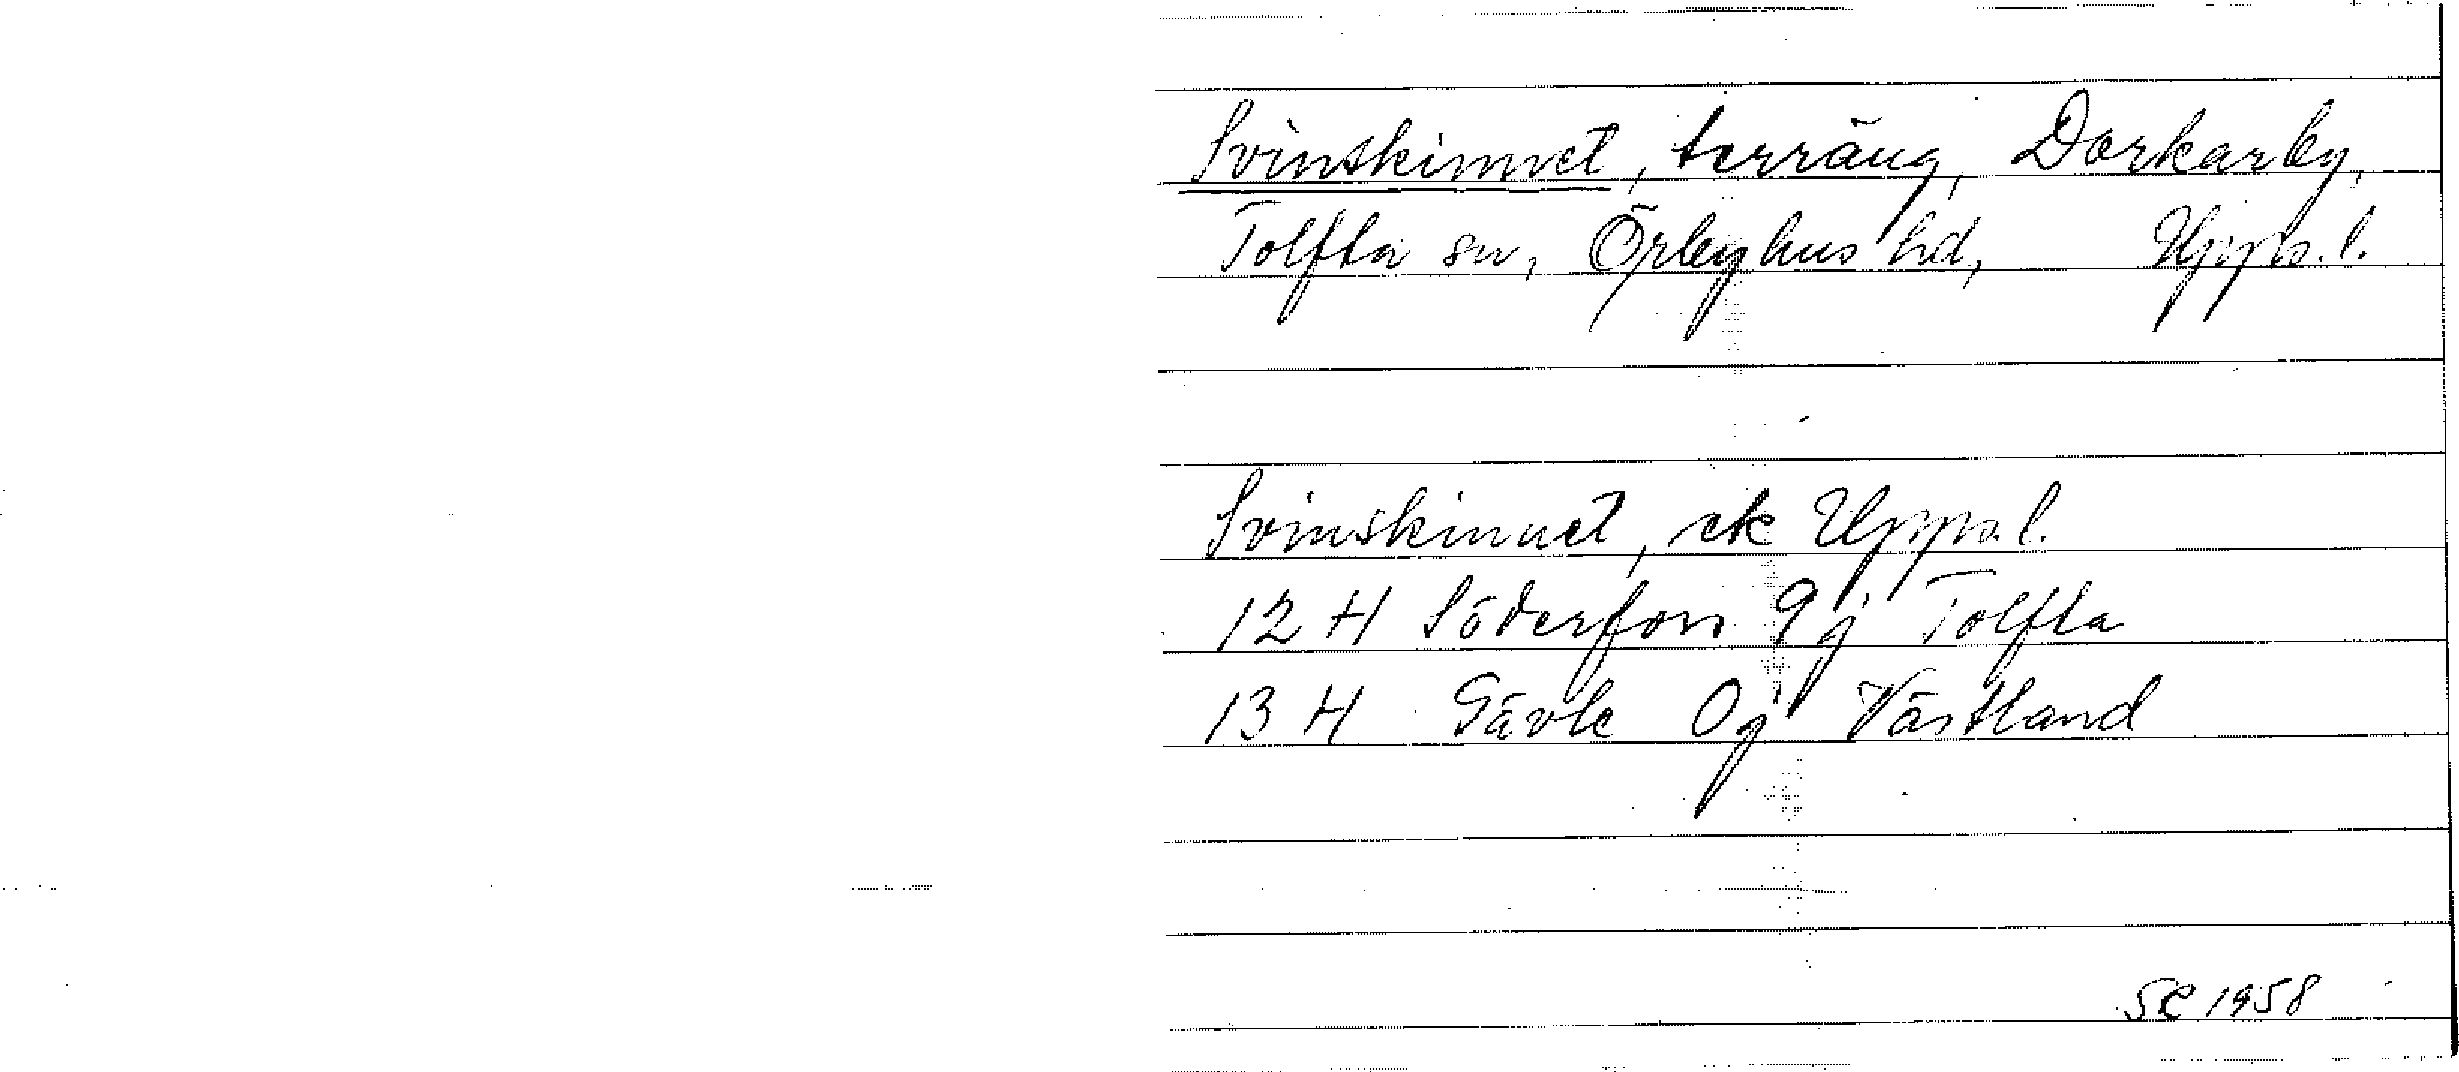 Svinskinnet, terräng, Dorkarby,
Tolfta sn, Örbyhus hd, Upps. l.
Svinskinnet, ek Upps. l.
12 H Söderfors 9j Tolfta
13 H Gävle 0j Västland
SR 1958